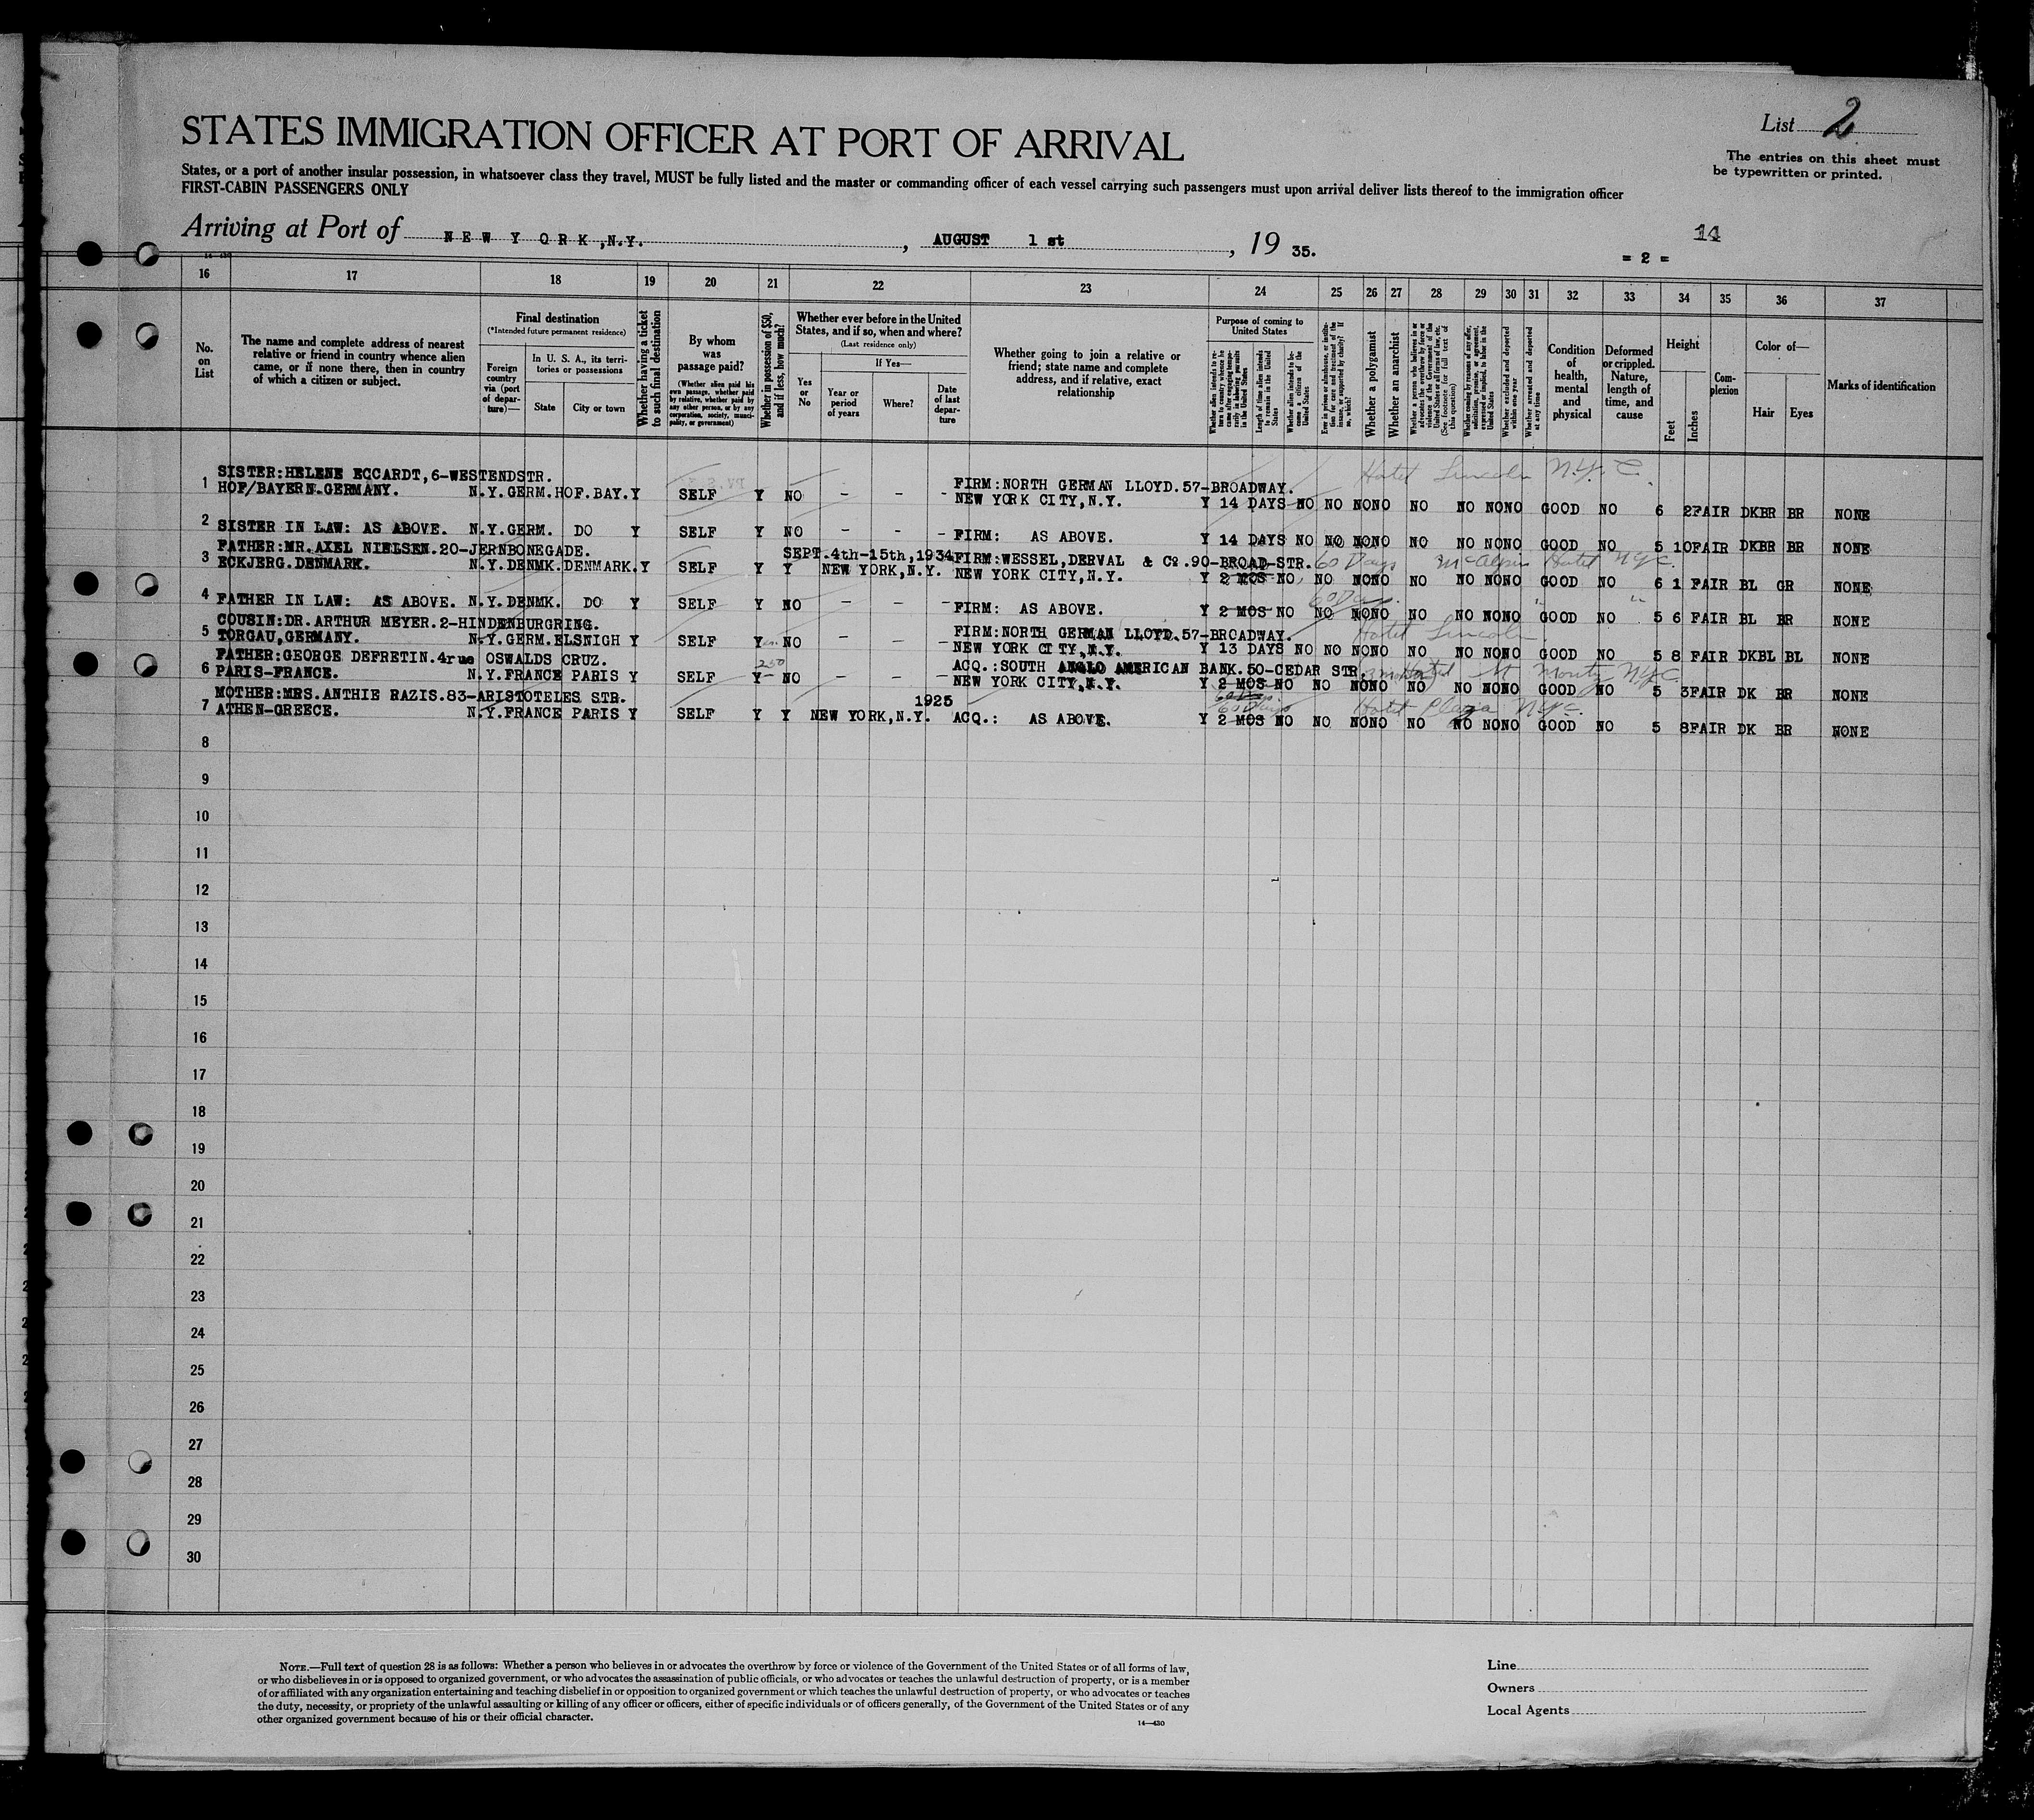 STATES IMMIGRATION OFFICER AT PORT OF ARRIVAL
List 2
The entries on this sheet must
be typewritten or printed.
States, or a port of another insular possession, in whatsoever class they travel, MUST be fully listed and the master or commanding officer of each vessel carrying such passengers must upon arrival deliver lists thereof to the immigration officer
FIRST-CABIN PASSENGERS ONLY
Arriving at Port of NEW YORK, N.Y., AUGUST 1 st, 19 35.
14
= 2 =
16 17 18 19 20 21 22 23 24 25 26 27 28 29 30 31 32 33 34 35 36 37
No. on List
The name and complete address of nearest relative or friend in country whence alien came, or if none there, then in country of which a citizen or subject.
Final destination
(*Intended future permanent residence)
Foreign country via (port of departure)—
In U. S. A., its territories or possessions
State
City or town
Whether having a ticket to such final destination
By whom was passage paid?
(Whether alien paid his own passage, whether paid by relative, whether paid by any other person, or by any corporation, society, municipality, or government)
Whether in possession of $50, and if less, how much?
Whether ever before in the United States, and if so, when and where?
(Last residence only)
Yes or No
If Yes—
Year or period of years
Where?
Date of last departure
Whether going to join a relative or friend; state name and complete address, and if relative, exact relationship
Purpose of coming to United States
Whether alien intends to return to country whence he came after engaging temporarily in laboring pursuits in the United States
Length of time alien intends to remain in the United States
Whether alien intends to become a citizen of the United States
Ever in prison or almshouse, or institution for care and treatment of the insane, or supported by charity? If so, which?
Whether a polygamist
Whether an anarchist
Whether a person who believes in or advocates the overthrow by force or violence of the Government of the United States or all forms of law, etc. (See footnote for full text of this question)
Whether coming by reason of any offer, solicitation, promise, or agreement, expressed or implied, to labor in the United States
Whether excluded and deported within one year
Whether arrested and deported at any time
Condition of health, mental and physical
Deformed or crippled. Nature, length of time, and cause
Height
Feet
Inches
Complexion
Color of—
Hair
Eyes
Marks of identification
Hotel Lincoln N.Y.C.
1 SISTER:HELENE ECCARDT,6-WESTENDSTR.
HOF/BAYERN-GERMANY. N.Y.GERM.HOF.BAY.Y SELF Y NO - - - FIRM:NORTH GERMAN LLOYD.57-BROADWAY.
NEW YORK CITY,N.Y. Y 14 DAYS NO NO NONO NO NO NONO GOOD NO 6 2FAIR DKBR BR NONE
2 SISTER IN LAW: AS ABOVE. N.Y.GERM. DO Y SELF Y NO - - - FIRM: AS ABOVE. Y 14 DAYS NO NO NONO NO NO NONO GOOD NO 5 10FAIR DKBR BR NONE
3 FATHER:MR.AXEL NIELSEN.20-JERNBONEGADE. SEPT.4th-15th,1934 FIRM:WESSEL,DERVAL & Co.90-BROAD-STR. 60 Days McAlpin Hotel NYC.
ECKJERG.DENMARK. N.Y.DENMK.DENMARK.Y SELF Y Y NEW YORK,N.Y. NEW YORK CITY,N.Y. Y 2 MOS NO NO NONO NO NO NONO GOOD NO 6 1 FAIR BL GR NONE
60 Days " "
4 FATHER IN LAW: AS ABOVE. N.Y.DENMK. DO Y SELF Y NO - - - FIRM: AS ABOVE. Y 2 MOS NO NO NONO NO NO NONO GOOD NO 5 6 FAIR BL BR NONE
5 COUSIN:DR.ARTHUR MEYER.2-HINDENBURGRING. FIRM:NORTH GERMAN LLOYD.57-BROADWAY. Hotel Lincoln
TORGAU,GERMANY. N.Y.GERM.ELSNIGH Y SELF Y NO - - - NEW YORK CITY,N.Y. Y 13 DAYS NO NO NONO NO NO NONO GOOD NO 5 8 FAIR DKBL BL NONE
6 FATHER:GEORGE DEFRETIN.4rue OSWALDS CRUZ. 250 ACQ.:SOUTH ANGLO AMERICAN BANK.50-CEDAR STR. Hotel St Moritz NYC
PARIS-FRANCE. N.Y.FRANCE PARIS Y SELF Y NO - - - NEW YORK CITY,N.Y. Y 2 MOS NO NO NONO NO NO NONO GOOD NO 5 3FAIR DK BR NONE
7 MOTHER:MRS.ANTHIE RAZIS.83-ARISTOTELES STR. 1925 60 Days Hotel Plaza NYC.
ATHEN-GREECE. N.Y.FRANCE PARIS Y SELF Y Y NEW YORK,N.Y. ACQ.: AS ABOVE. Y 2 MOS NO NO NONO NO NO NONO GOOD NO 5 8FAIR DK BR NONE
8
9
10
11
12
13
14
15
16
17
18
19
20
21
22
23
24
25
26
27
28
29
30
NOTE.—Full text of question 28 is as follows: Whether a person who believes in or advocates the overthrow by force or violence of the Government of the United States or of all forms of law,
or who disbelieves in or is opposed to organized government, or who advocates the assassination of public officials, or who advocates or teaches the unlawful destruction of property, or is a member
of or affiliated with any organization entertaining and teaching disbelief in or opposition to organized government or which teaches the unlawful destruction of property, or who advocates or teaches
the duty, necessity, or propriety of the unlawful assaulting or killing of any officer or officers, either of specific individuals or of officers generally, of the Government of the United States or of any
other organized government because of his or their official character.
14—430
Line
Owners
Local Agents